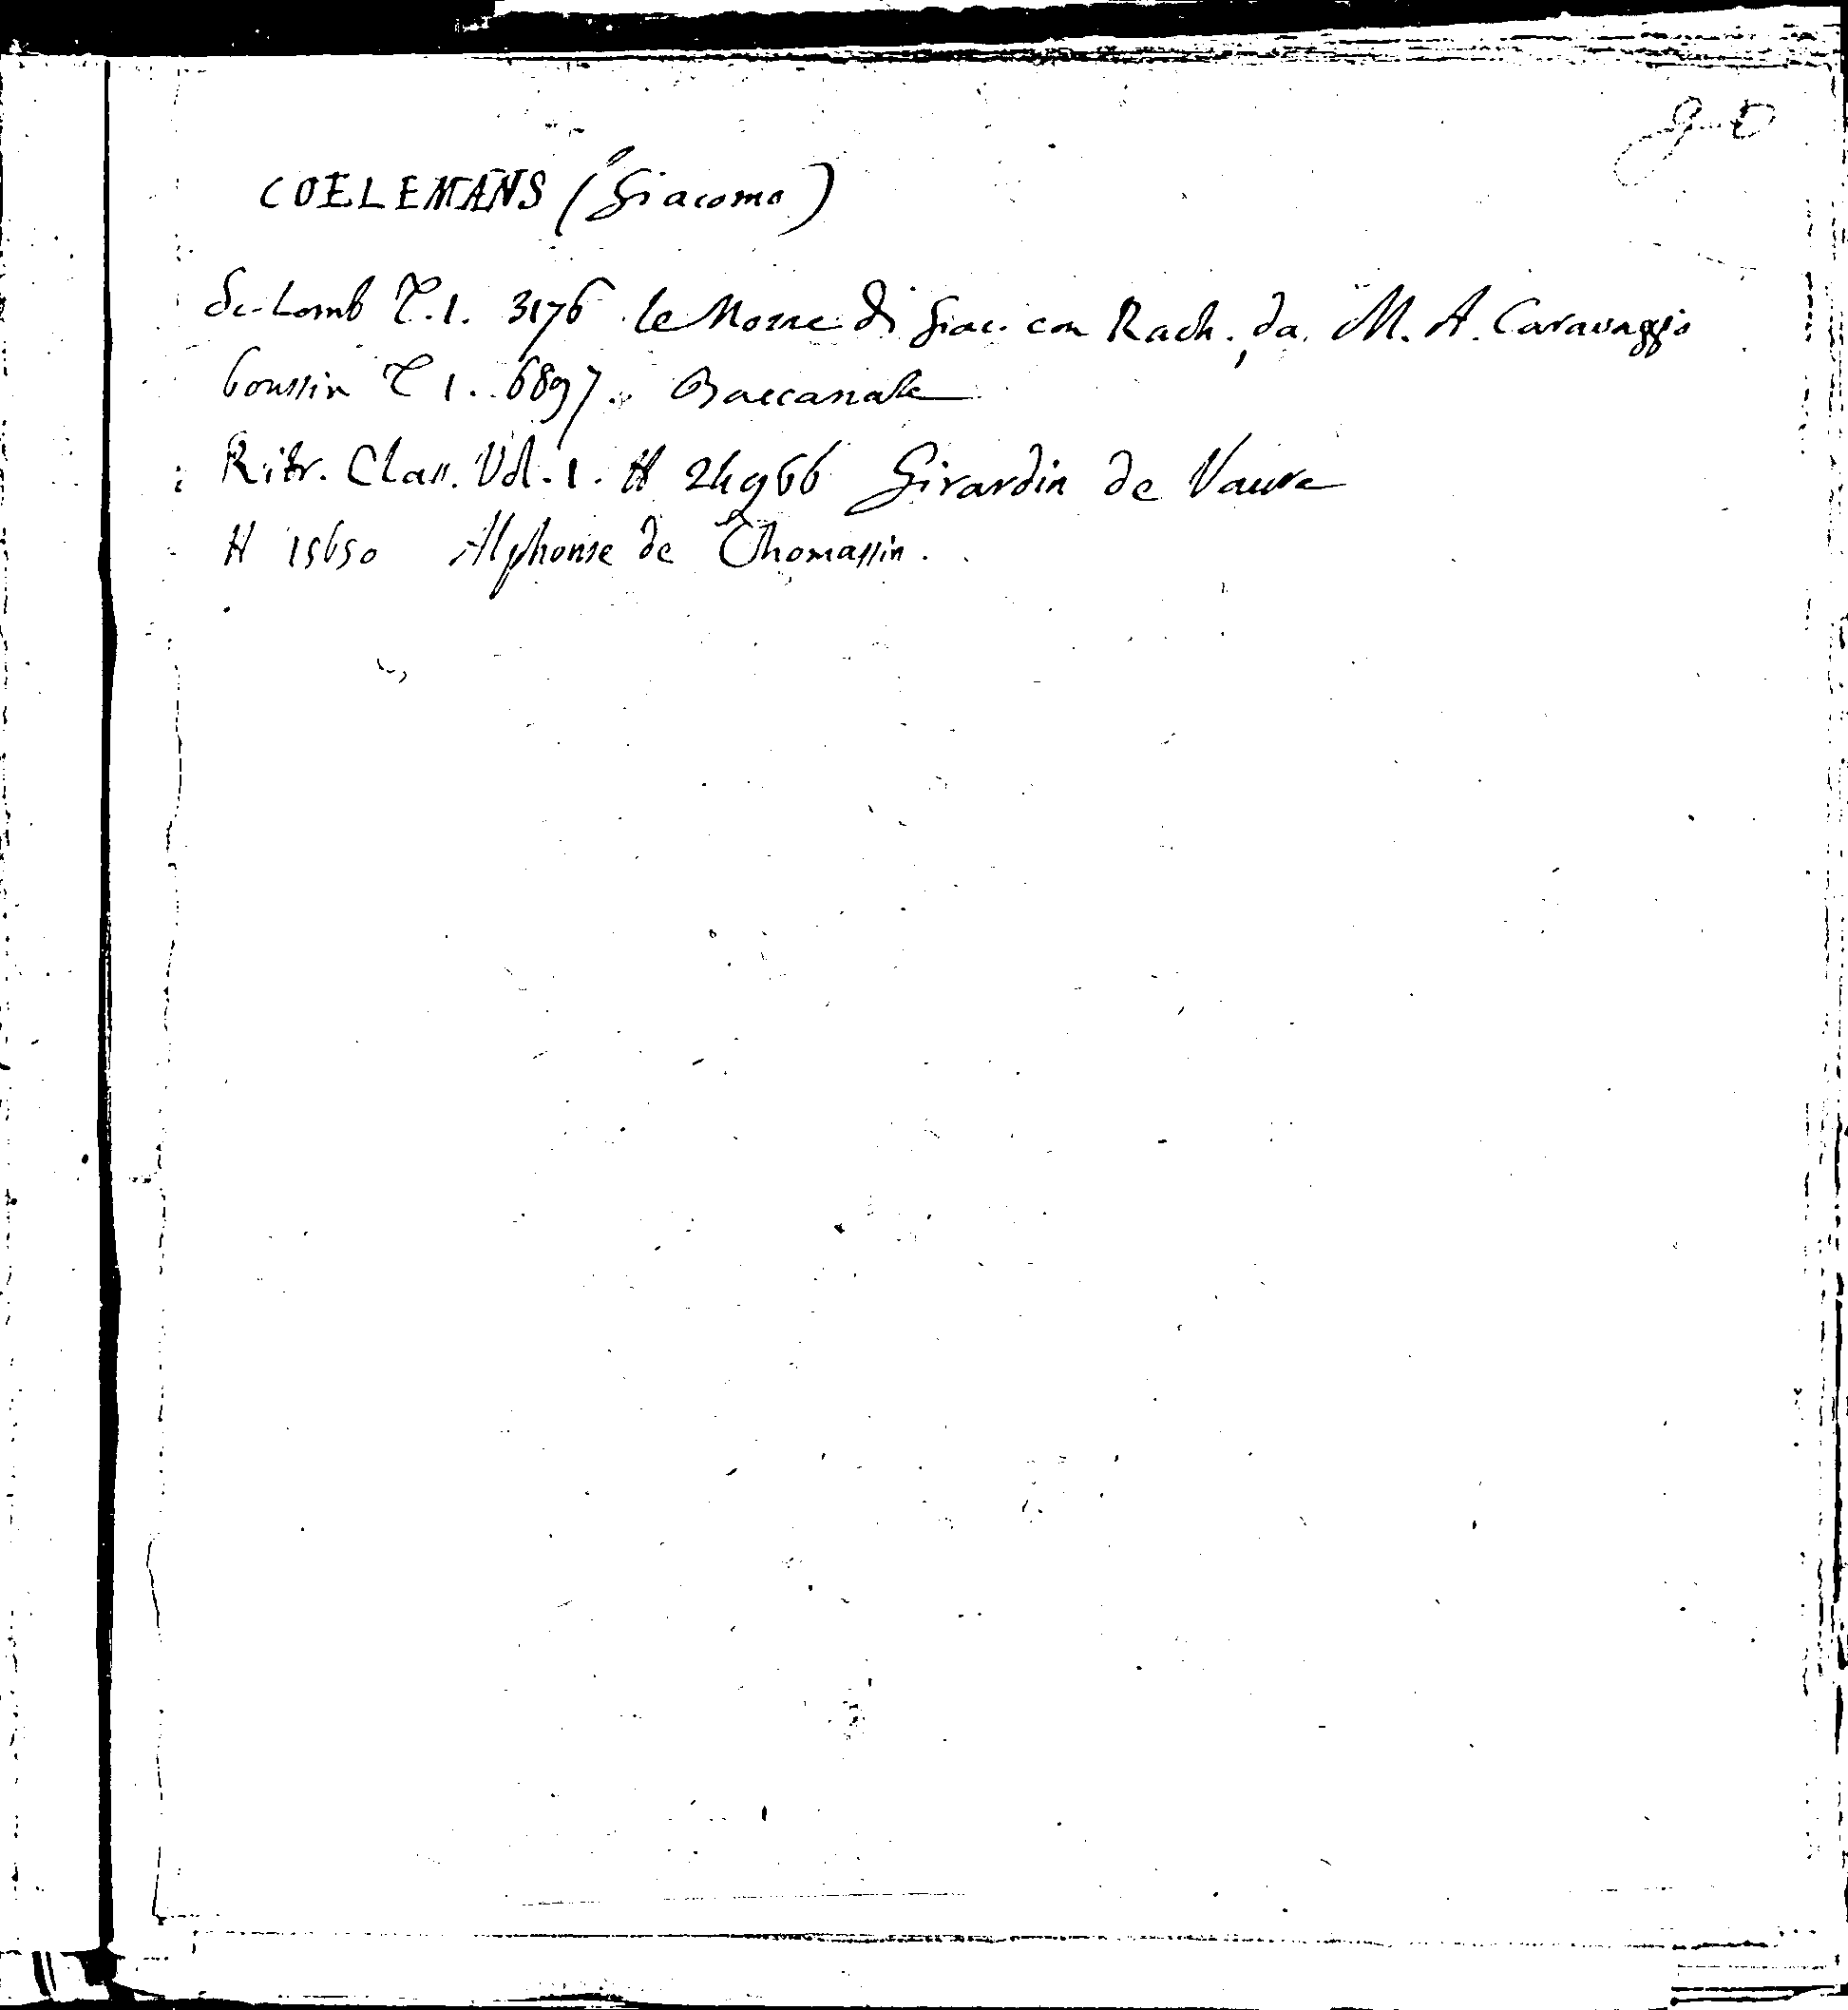 COELEMANS (Giacomo)
Sc. Lomb T. 1. 3176 le Nozze di Giac. con Rach. da M. A. Caravaggio
Poussin T 1. 6897. Baccanale
Ritr. Class. Vol. 1. H 24966 Girardin de Vauve
H 15650 Alphonse de Thomassin.